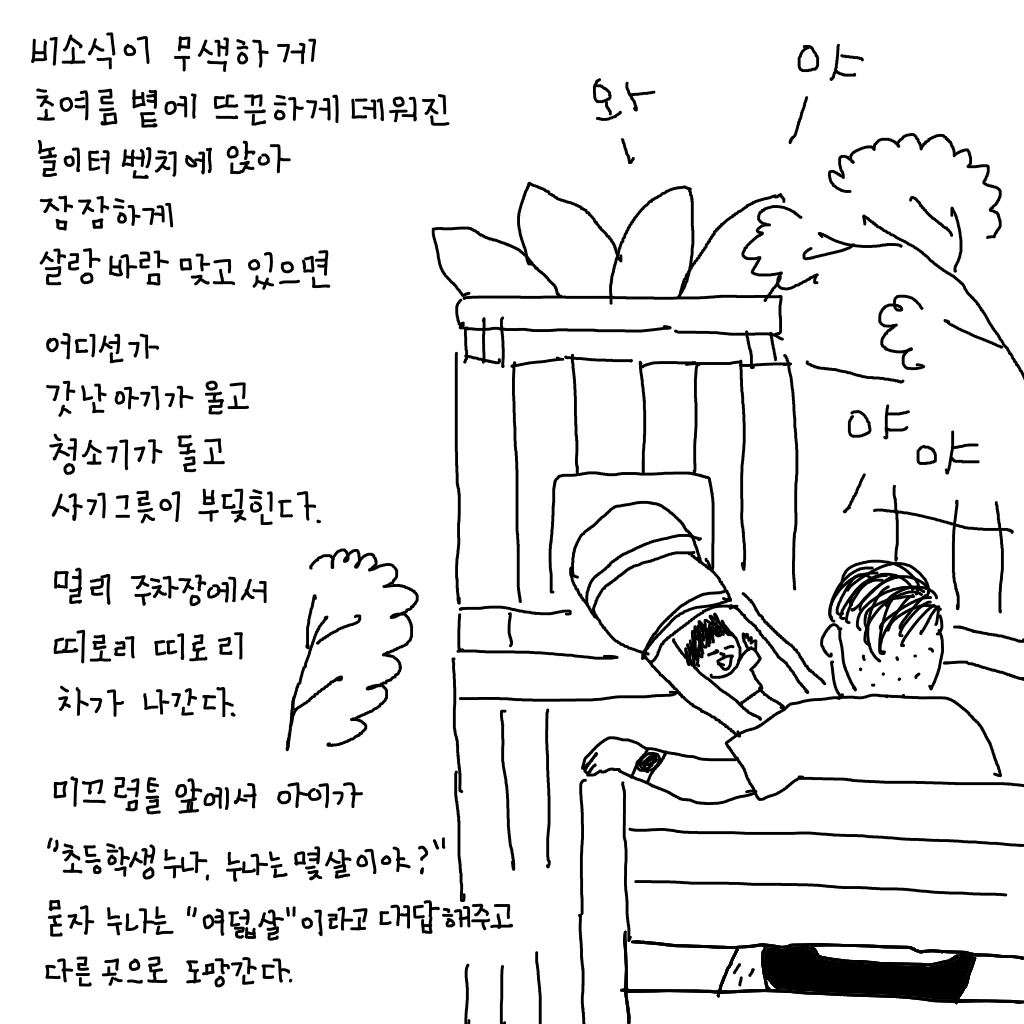 비소식이 무색하게
초여름 볕에 뜨끈하게 데워진
놀이터 벤치에 앉아
잠잠하게
살랑 바람 맞고 있으면
어디선가
갓난아기가 울고
청소기가 돌고
사기그릇이 부딪힌다.
멀리 주차장에서
띠로리 띠로리
차가 나간다.
미끄럼틀 앞에서 아이가
"초등학생 누나, 누나는 몇살이야?"
묻자 누나는 "여덟살"이라고 대답해주고
다른 곳으로 도망간다.
와
야
야
야